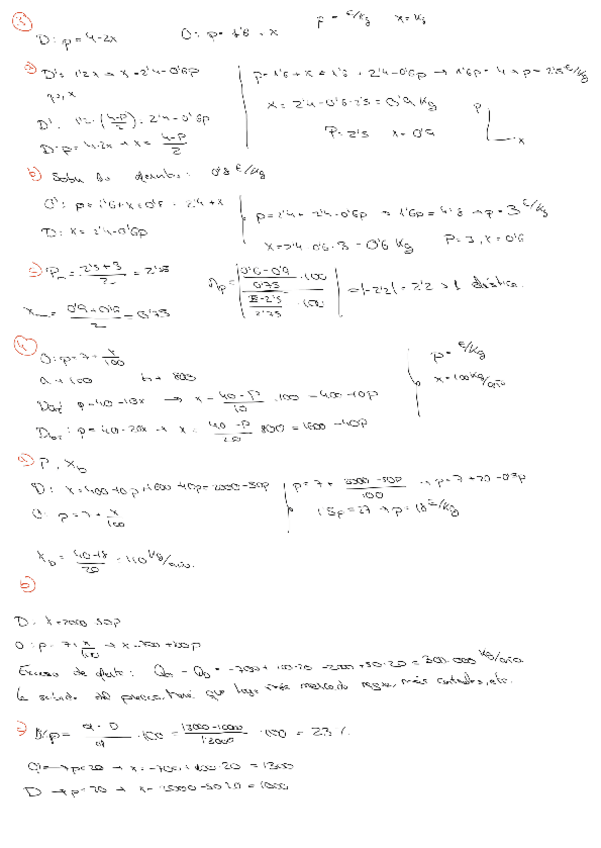 3
p = €/kg x = kg
D: p = 4-2x O: p = 1'6 + x
a) D': 1'2x → x = 2'4-0'6p
p = 1'6 + x = 1'6 + 2'4-0'6p → 1'6p = 4 → p = 2'5 €/kg
x = 2'4-0'6·2'5 = 0'9 kg
p
D': 1'2·(4-p/2) = 2'4-0'6p
P = 2'5 x = 0'9
x
D: p = 4-2x → x = 4-p/2
b) 0'8 €/kg
O': p = 1'6+x+0'8 = 2'4+x
p = 2'4 + 2'4-0'6p → 1'6p = 4'8 → p = 3 €/kg
D: x = 2'4-0'6p
x = 2'4-0'6·3 = 0'6 kg P = 3, x = 0'6
c) Pm = 2'5+3/2 = 2'75
0'6-0'9/0'75 ·100
3-2'5/2'75 ·100
= |-2'2| = 2'2 > 1 elástica.
xm = 0'9+0'6/2 = 0'75
4
O: p = 7 + x/100
p = €/kg
a → 100 b → 800
x = 100 kg/año
p = 40-10x → x = 40-p/10 ·100 = 400-10p
p = 40-20x → x = 40-p/20 ·800 = 1600-40p
a) P, xb
D: x = 400-10p+1600-40p = 2000-50p
p = 7 + 2000-50p/100 → p = 7+20-0'5p
O: p = 7 + x/100
1'5p = 27 → p = 18 €/kg
xb = 40-18/20 = 1'10 kg/año.
b)
D: x = 2000-50p
O: p = 7 + x/100 → x = -700+100p
Exceso de oferta: Qo - QD = -700+100·20-2000+50·20 = 300.000 kg/año
que haya más mercado negro, más controles, etc.
c) ·100 = 13000-10000/13000 ·100 = 23 %
O → p=20 → x = -700+100·20 = 1300
D → p=20 → x = 2000-50·20 = 1000